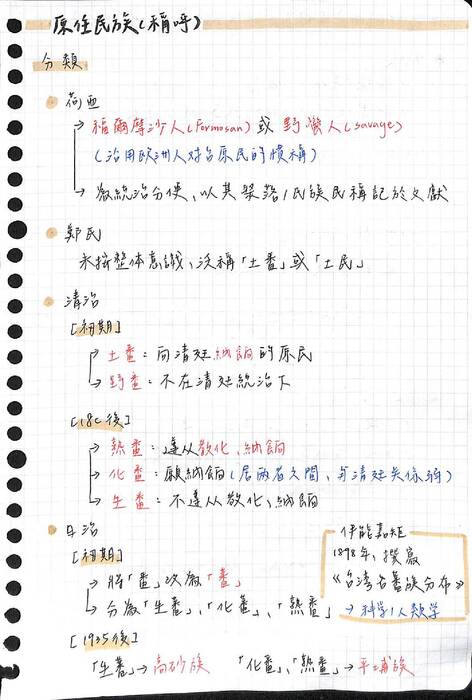 原住民族(稱呼)
分類
荷西
→ 福爾摩沙人(Formosan) 或 野蠻人(savage)
(沿用歐洲人對台原民的慣稱)
→ 為統治方便、以其聚落/民族民稱記於文獻
鄭氏
未按整体意識、泛稱「土番」或「土民」
清治
[初期]
→ 土番：向清廷納餉的原民
→ 野番：不在清廷統治下
[18C後]
→ 熟番：遵从教化、納餉
→ 化番：願納餉(居兩者之間、與清廷关係弱)
→ 生番：不遵从教化、納餉
日治
[初期]
→ 將「番」改為「蕃」
→ 分為「生蕃」、「化蕃」、「熟蕃」
伊能嘉矩
1898年、撰寫
《台湾古蕃族分布》
→ 科学人類学
[1935後]
「生蕃」→ 高砂族 「化蕃」、「熟蕃」→ 平埔族